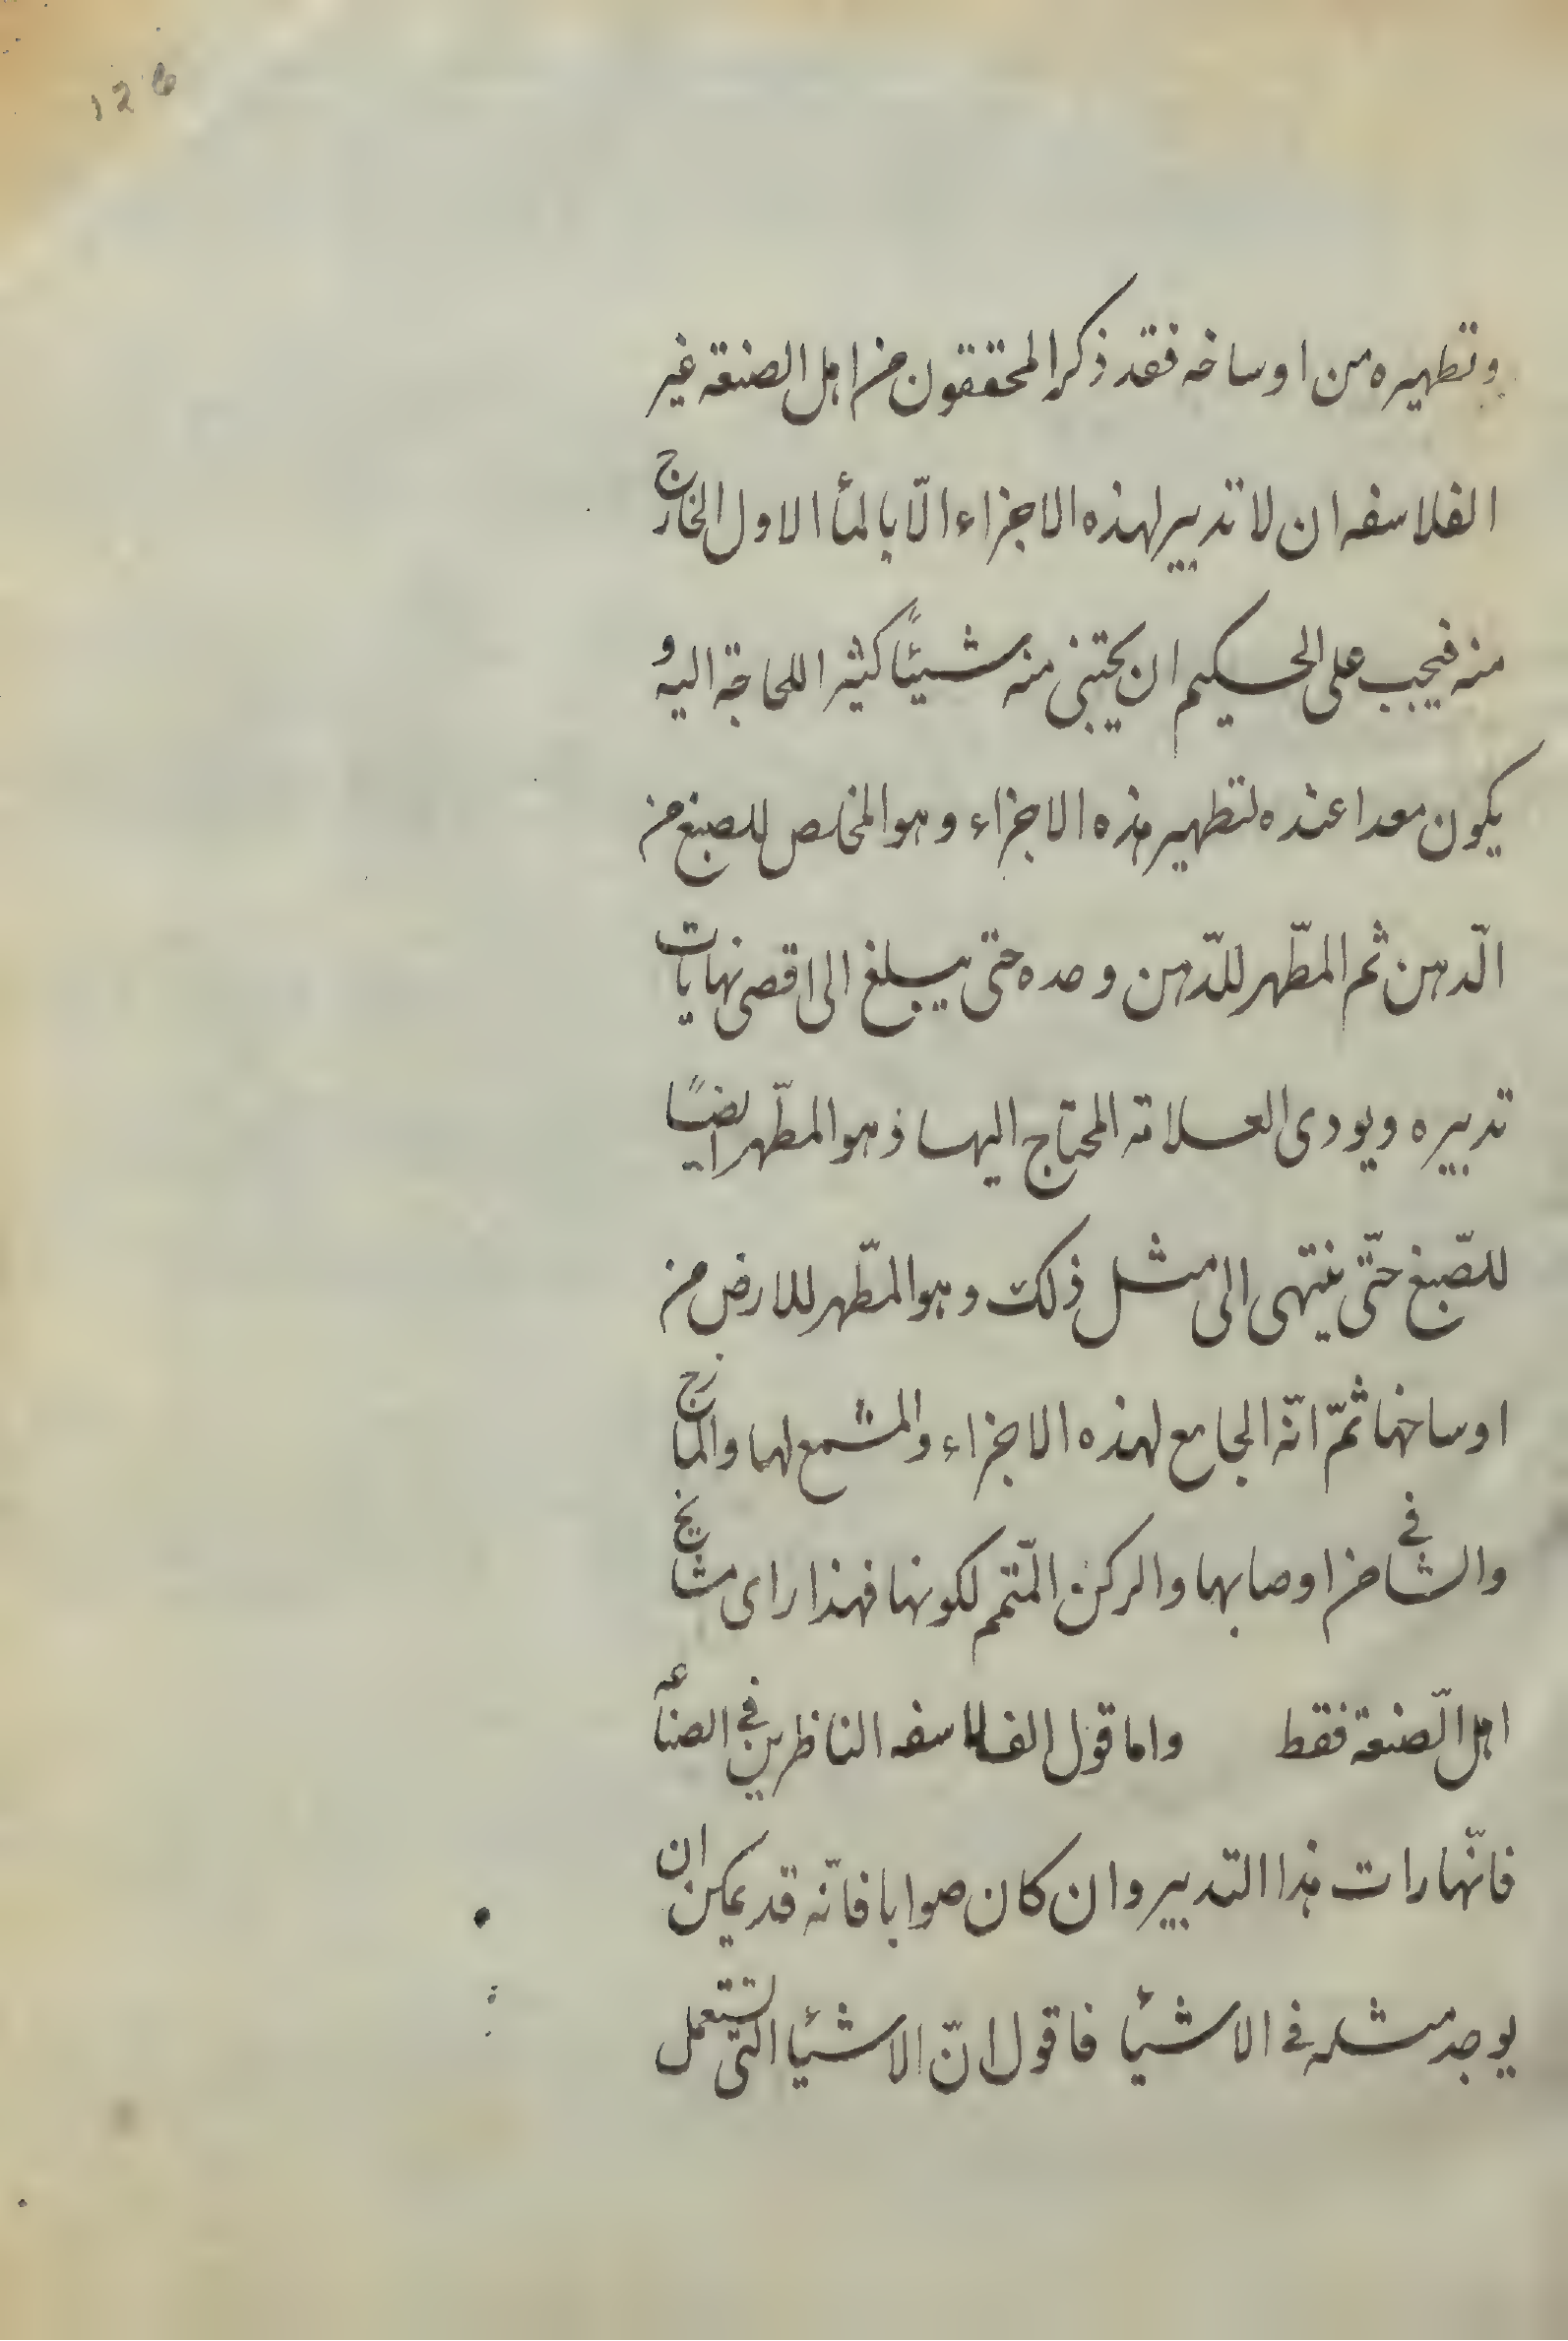 126
وتطهيره من اوساخه فقد ذكر المحققون من اهل الصنعة غير
الفلاسفه ان لا تدبير لهذه الاجزاء الّا بالمأ الاول الخارج
منه فيجب على الحكيم ان يجتنى منه شيئًا كثيرا للحاجة اليه و
يكون معدا عنده لتطهير هذه الاجزاء وهو المخلص للصبغ من
الّدهن ثم المطّهر للّدهن وحده حتى يبلغ الى اقصى نهايات
تدبيره ويودى العلامة المحتاج اليها وهو المطّهر ايضًا
للصّبغ حتّى ينتهى الى مثل ذلك وهو المطّهر للارض من
اوساخها ثمّ انّه الجامع لهذه الاجزاء والمشمع لها والمازج
والشافى من اوصابها والركن المّتمم لكونها فهذا راى مشايخ
اهل الّصنعة فقط واما قول الفلاسفه الناظرين فى الصناعه
فانّها رات هذا التدبير وان كان صوابا فانّه قد يمكن ان
يوجد مثله فى الاشيأ فاقول انّ الاشيأ التى تستعمل